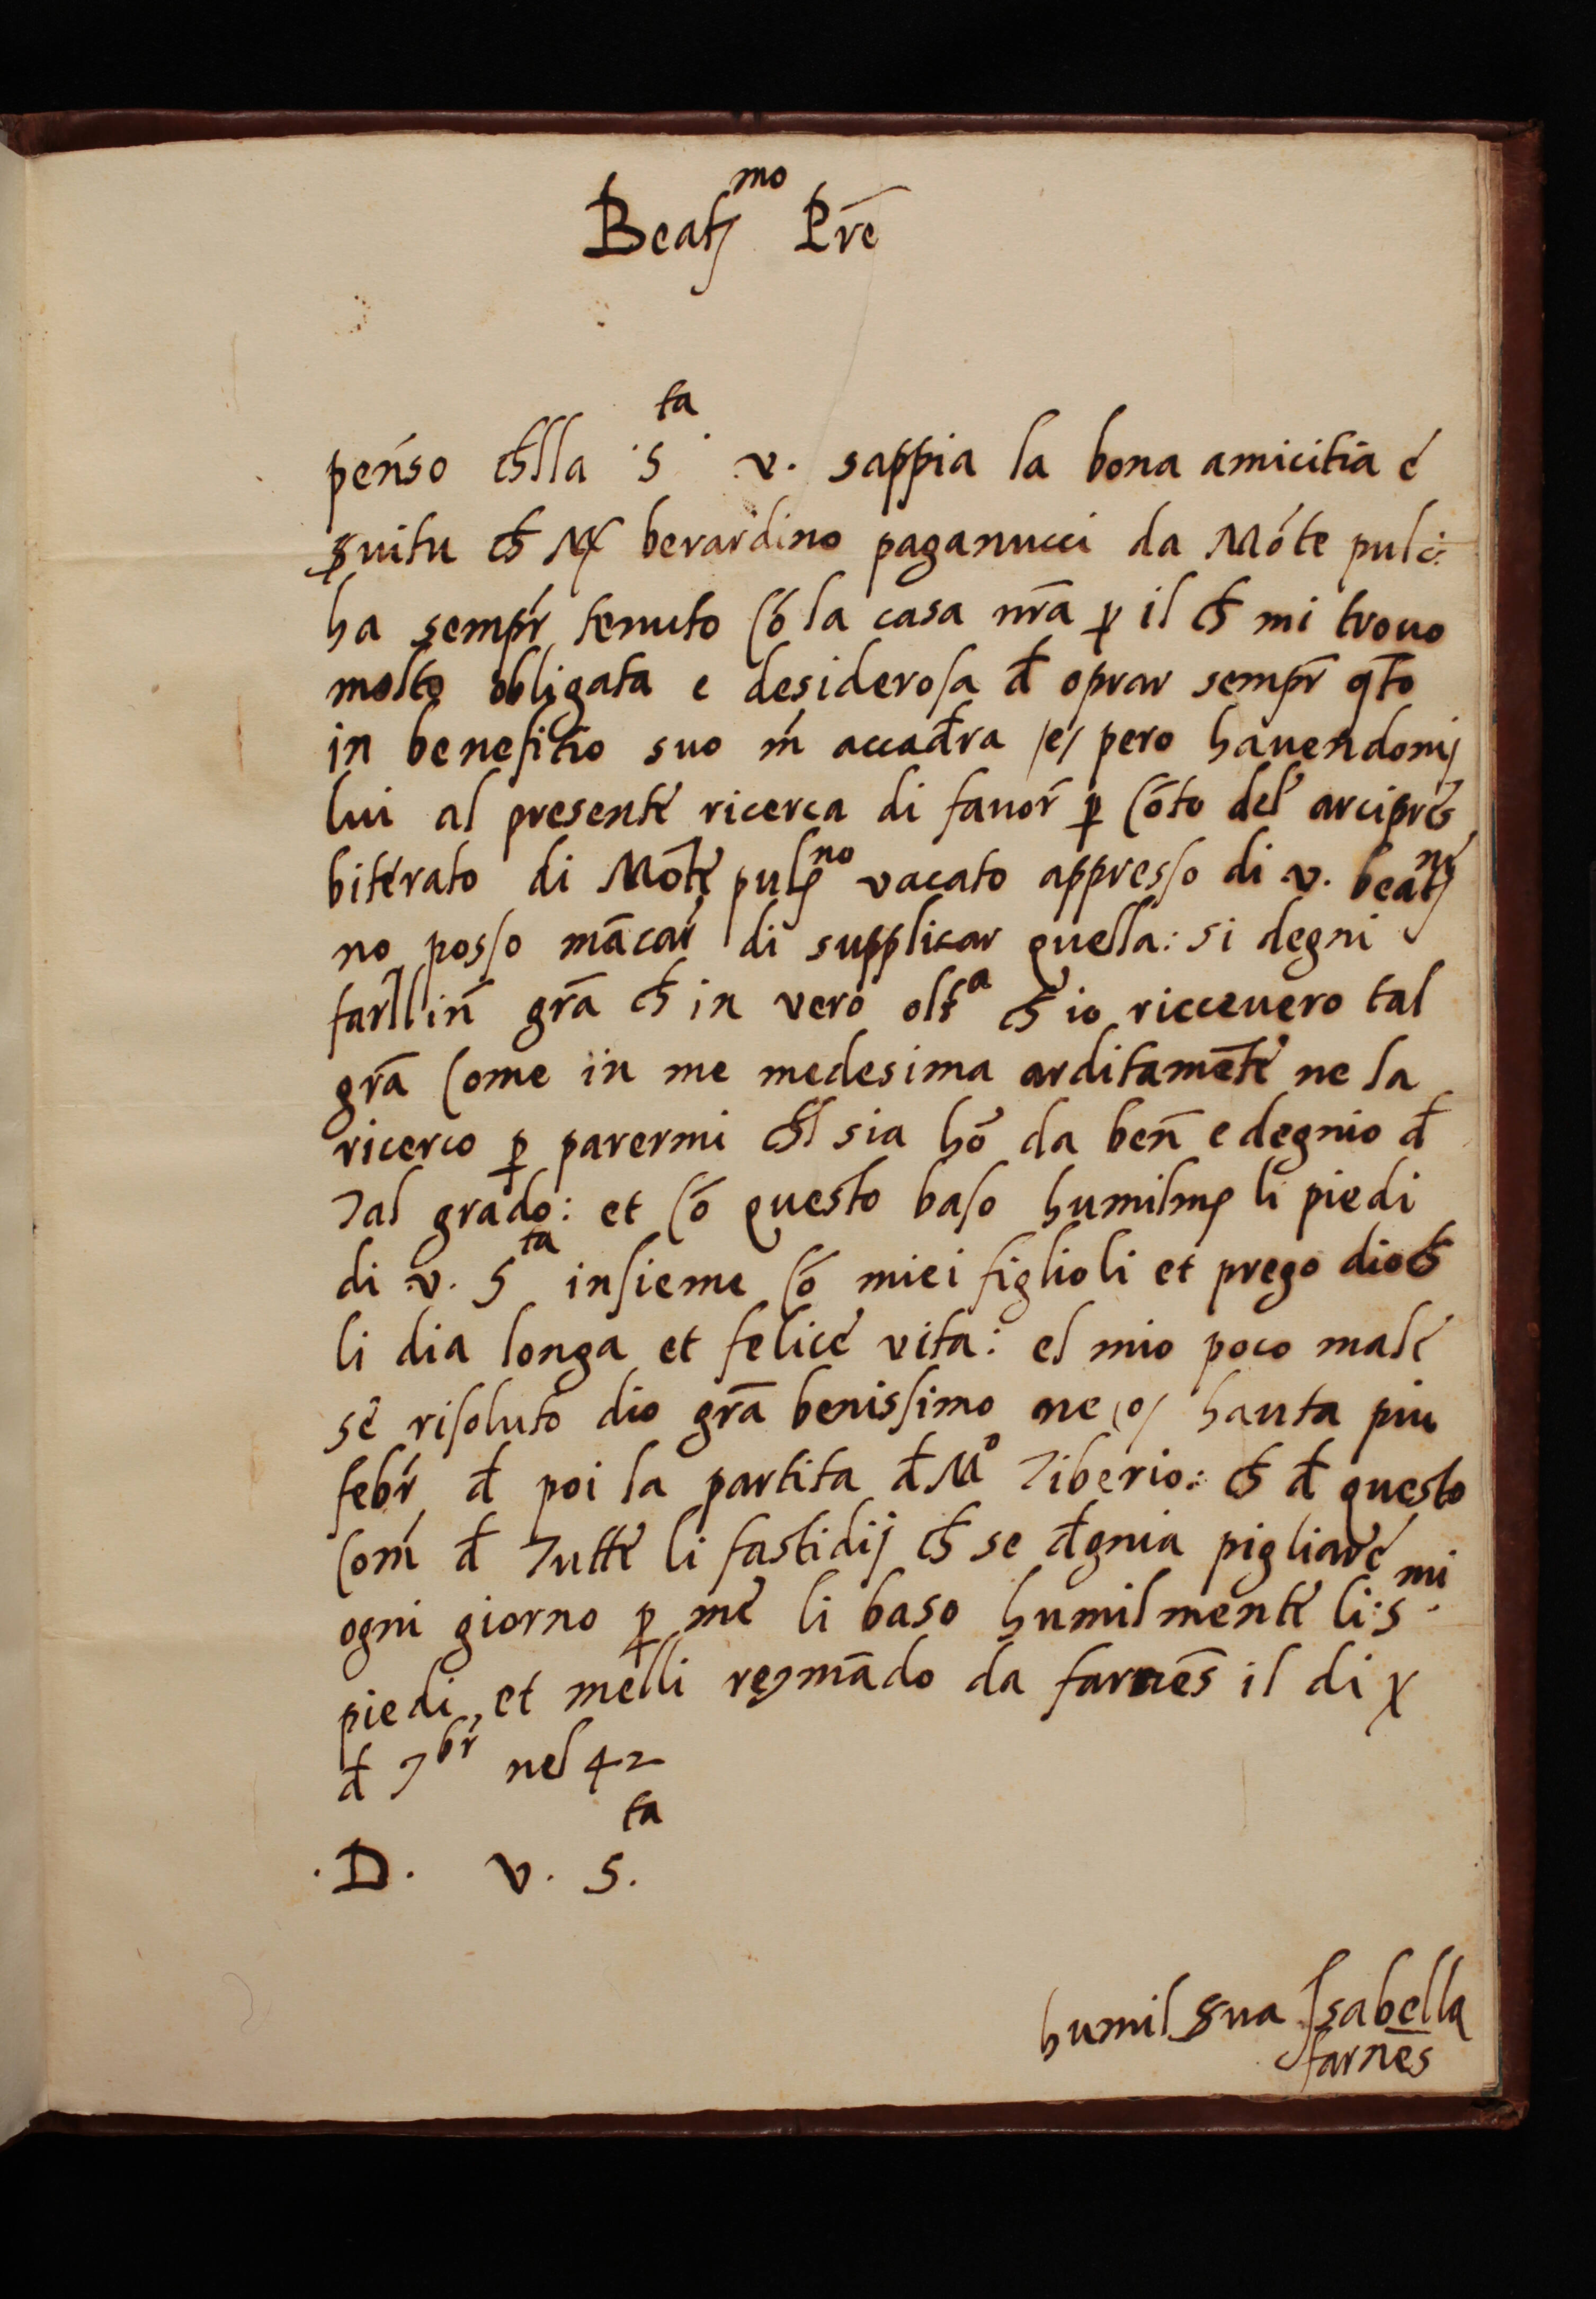 Beatmo Pre
penso chlla Sta v. sappia la bona amicitia e
servitu ch M berardino paganucci da Mōte pulci:
ha sempr tenuto cō la casa nrā p il ch mi trovo
molto obligata e desiderosa d oprar sempr qto
in benefitio suo m accadra /e/ pero havendomi
lui al presente ricerca di favor p cōto del arcipres
biterato di Mōte pulno vacato appresso di v. beatne
no posso mācar di supplicar quella: si degni
farllin grā ch in vero oltra ch io riccevero tal
grā come in me medesima arditamēte ne la
ricerco p parermi chl sia hō da ben e degnio d
Tal grado: et cō questo baso humilm li piedi
di v. Sta insieme cō miei figlioli et prego dio ch
li dia longa et felice vita: el mio poco male
se risoluto dio grā benissimo ne /o/ hauta piu
febr d poi la partita d Mo Tiberio: ch d questo
com d Tutte li fastidij ch se degnia pigliare
ogni giorno p me li baso humilmente li: Smi
piedi et melli recomādo da farnes il di x
d 7br nel 42
.D. v. S.ta
humil serva Isabella
farnēs